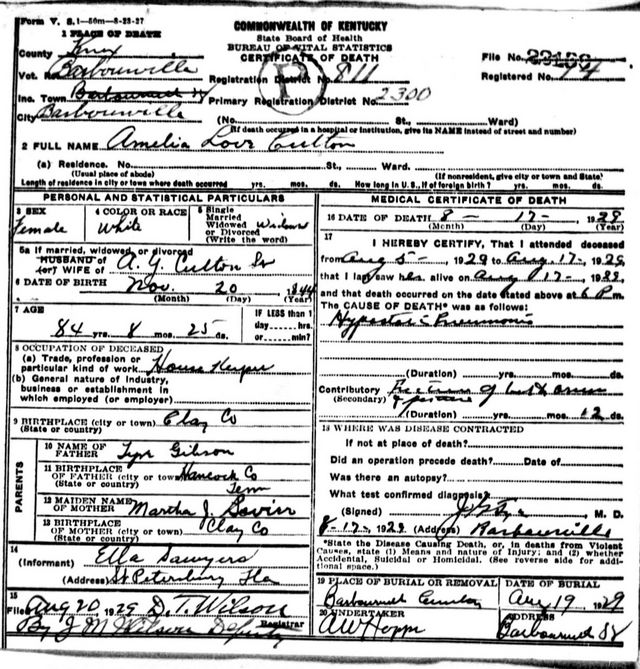 Form V. S. 1-50m-8-23-27
COMMONWEALTH OF KENTUCKY
State Board of Health
BUREAU OF VITAL STATISTICS
CERTIFICATE OF DEATH
1 PLACE OF DEATH
County Knox
Vot. Barbourville
Inc. Town
City Barbourville
File No.
Registered No. 74
Registration District No. 811
Primary Registration District No. 2300
(No. St., Ward)
(If death occurred in a hospital or institution, give its NAME instead of street and number)
2 FULL NAME Amelia Love Culton
(a) Residence. No. St., Ward.
(Usual place of abode) (If nonresident, give city or town and State)
Length of residence in city or town where death occurred yrs. mos. ds. How long in U. S., if of foreign birth? yrs. mos. ds.
PERSONAL AND STATISTICAL PARTICULARS
3 SEX
Female
4 COLOR OR RACE
White
5 Single
Married
Widowed
or Divorced
(Write the word)
Widow
5a If married, widowed, or divorced
HUSBAND of
(or) WIFE of A. Y. Culton Sr
6 DATE OF BIRTH Nov. 20 1844
(Month) (Day) (Year)
7 AGE
84 yrs. 8 mos. 25 ds.
IF LESS than 1
day hrs.
or min?
8 OCCUPATION OF DECEASED
(a) Trade, profession or
particular kind of work House Keeper
(b) General nature of industry,
business or establishment in
which employed (or employer)
9 BIRTHPLACE (city or town) Clay Co
(State or country)
PARENTS
10 NAME OF
FATHER Gibson
11 BIRTHPLACE
OF FATHER (city or town) Hancock Co
(State or country) Tenn
12 MAIDEN NAME
OF MOTHER Martha J.
13 BIRTHPLACE
OF MOTHER Clay Co
(State or country)
14
(Informant) Ella Sawyers
(Address) St Petersburg Fla
15
Filed Aug 20, 1929 D. T. Wilson
Registrar
By J M Wilson Deputy
MEDICAL CERTIFICATE OF DEATH
16 DATE OF DEATH 8 - 17 - 1929
(Month) (Day) (Year)
17
I HEREBY CERTIFY, That I attended deceased
from Aug 5 - 1929 to Aug. 17 - 1929
that I last saw her alive on Aug 17 - 1929,
and that death occurred on the date stated above at 6 P m.
The CAUSE OF DEATH* was as follows:
Hypostatic Pneumonia
(Duration) yrs. mos. ds.
Contributory Fracture of
(Secondary)
(Duration) yrs. mos. 12 ds.
18 WHERE WAS DISEASE CONTRACTED
If not at place of death?
Did an operation precede death? Date of
Was there an autopsy?
What test confirmed diagnosis?
(Signed) M. D.
8-17-1929 (Address) Barbourville
*State the Disease Causing Death, or, in deaths from Violent
Causes, state (1) Means and nature of Injury; and (2) whether
Accidental, Suicidal or Homicidal. (See reverse side for addi-
tional space.)
19 PLACE OF BURIAL OR REMOVAL
DATE OF BURIAL
Aug 19 1929
20 UNDERTAKER
A W Hopper
ADDRESS